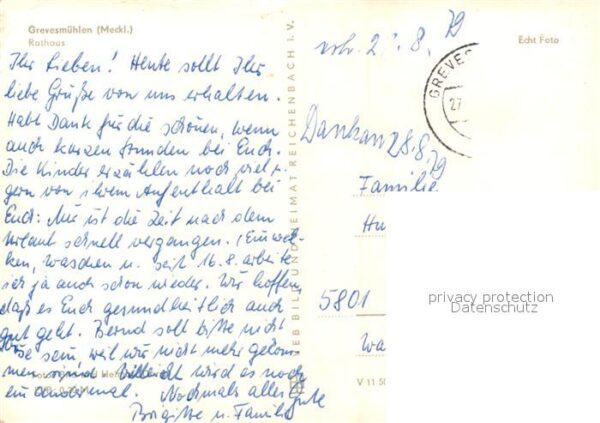 Grevesmühlen (Meckl.)
Rathaus
Ihr Lieben! Heute sollt Ihr
liebe Grüße von uns erhalten.
Habt Dank für die schönen, wenn
auch kurzen Stunden bei Euch.
Die Kinder erzählen noch viel u.
gern von ihrem Aufenthalt bei
Euch. Nur ist die Zeit nach dem
Urlaub schnell vergangen. (Einwek-
ken, waschen u. seit 16.8. arbeite
ich ja auch schon wieder. Wir hoffen,
daß es Euch gesundheitlich auch
gut geht. Bernd soll bitte nicht
böse sein, weil wir nicht mehr gekom-
men sind. Vielleicht wird es noch
ein andermal. Nochmals alles Gute
Brigitte u. Familie
VEB BILD UND HEIMAT REICHENBACH I. V.
8. 79
Echt Foto
GREVES
27
28.8.79
Familie
Hu
5801
Wa
V 11 50
privacy protection
Datenschutz